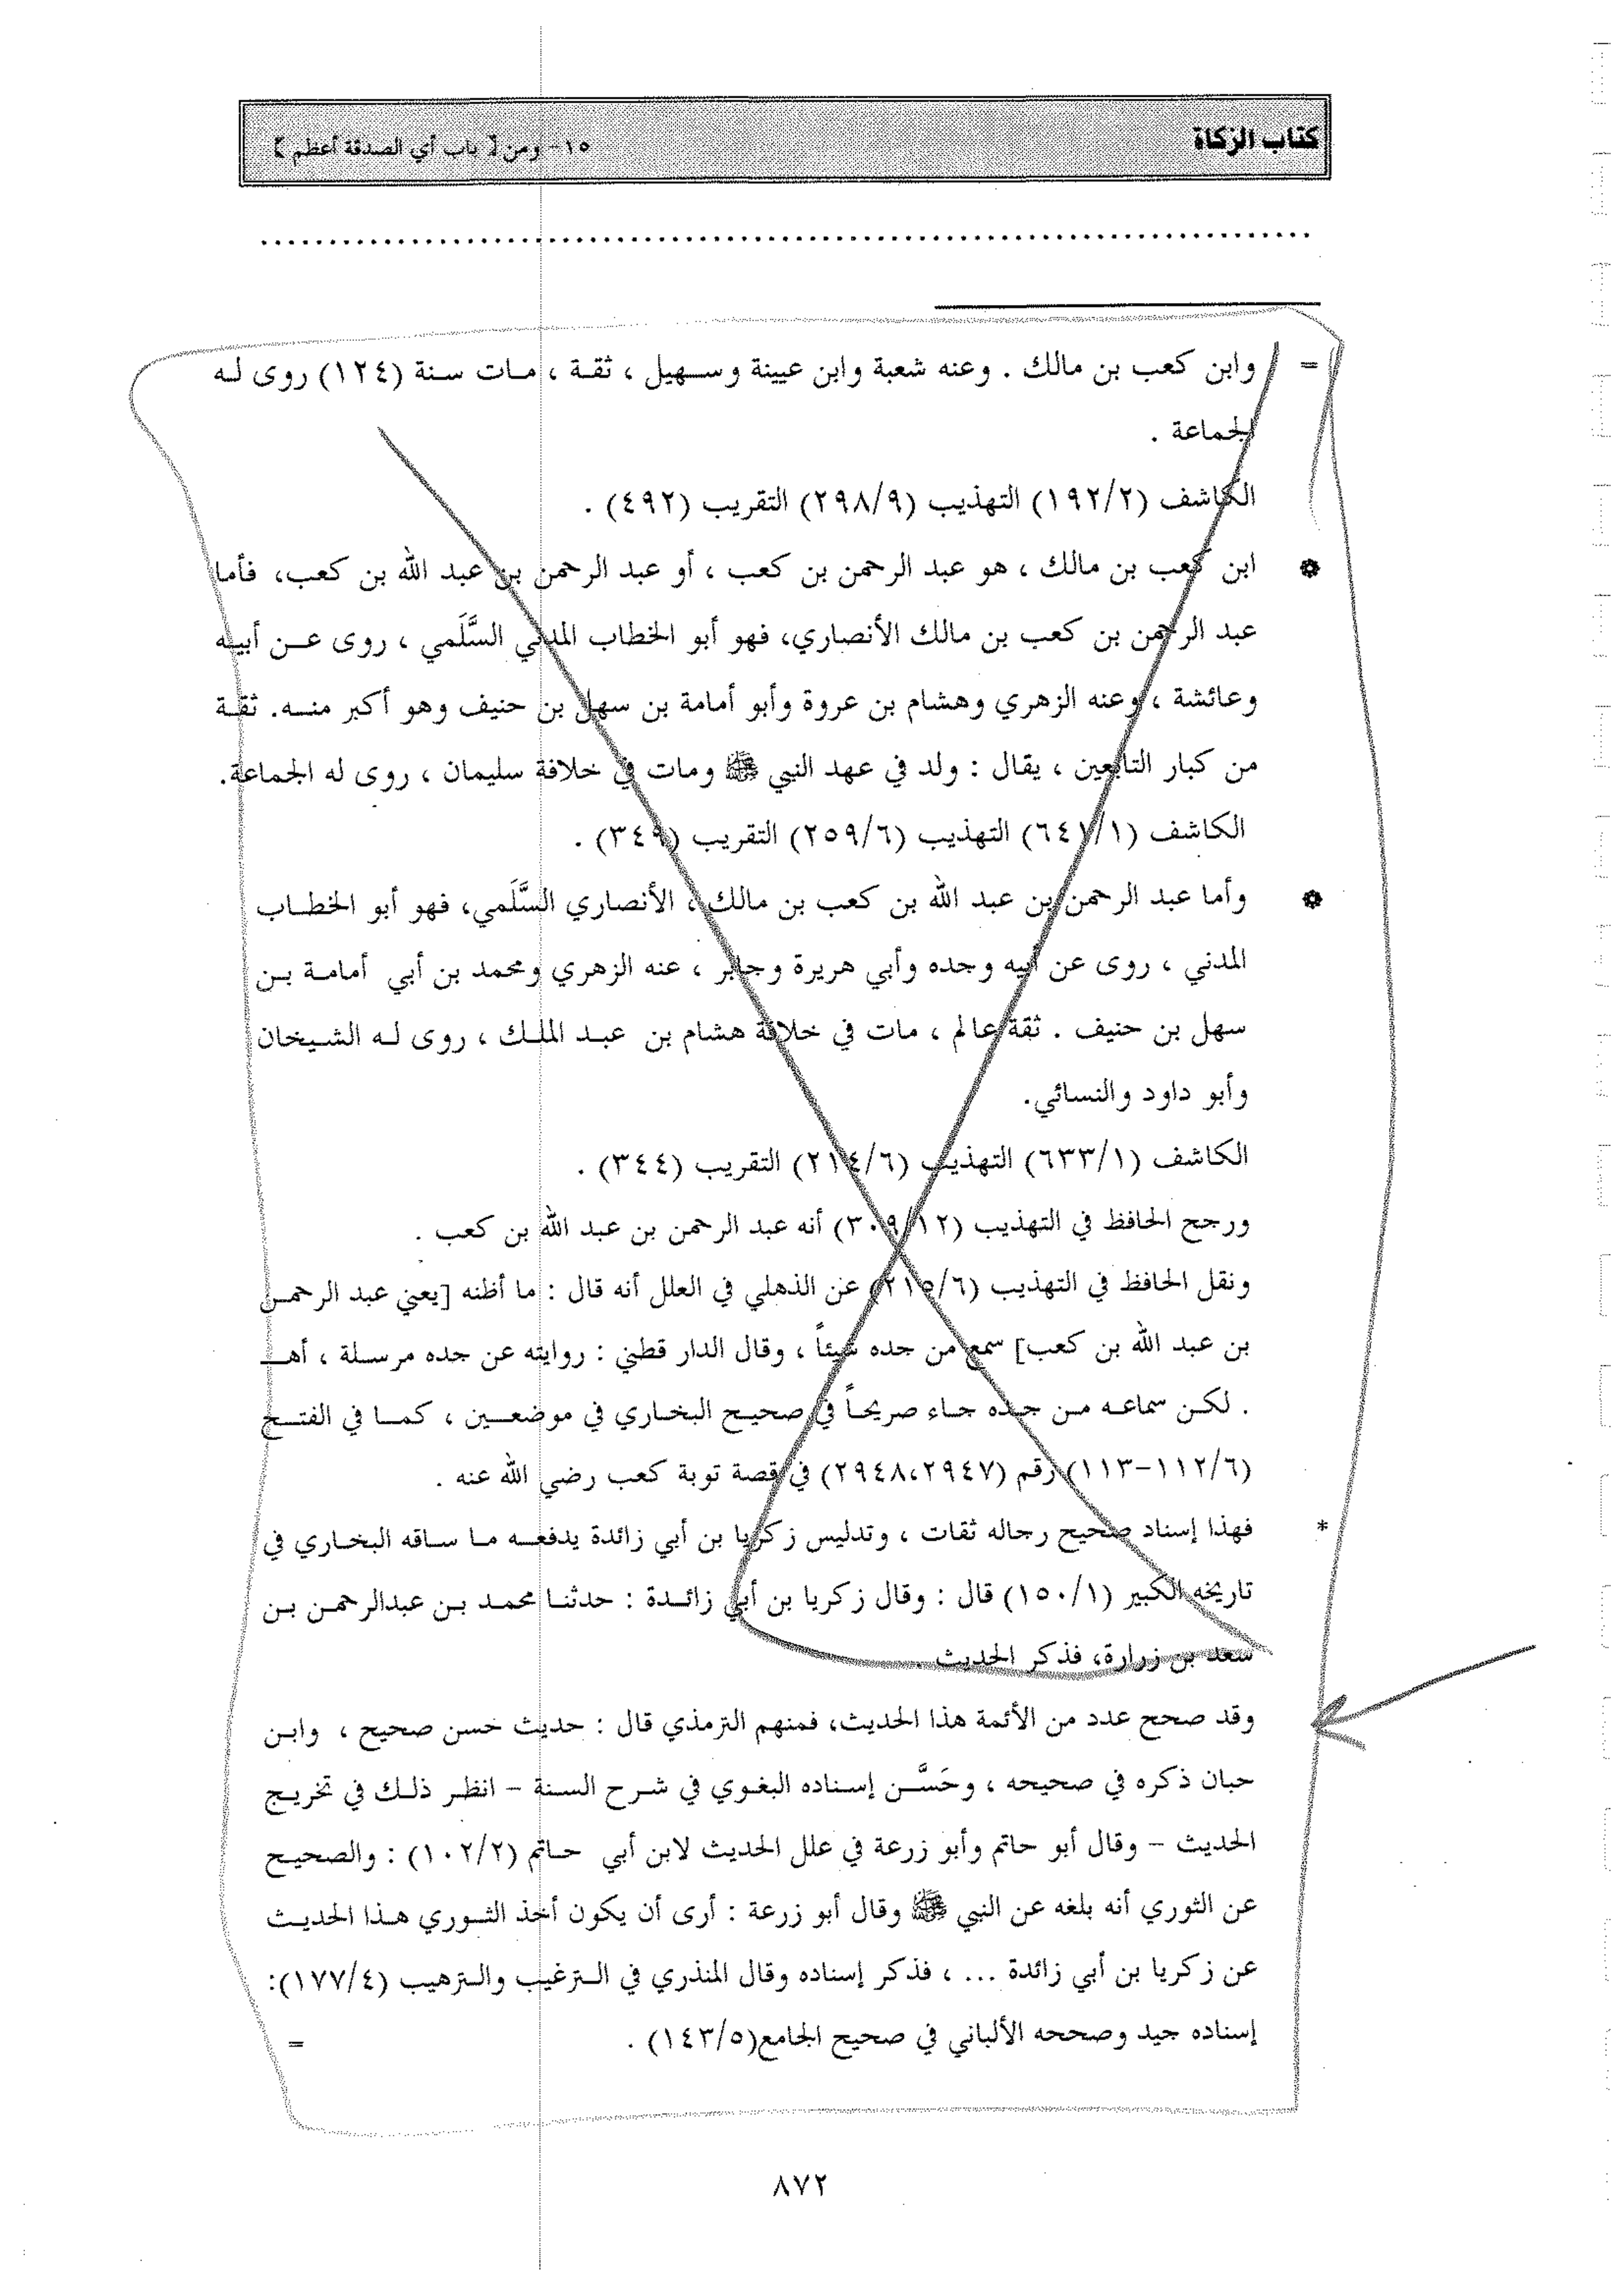 كتاب الزكاة
١٥- ومن [ باب أي الصدقة أعظم ]
................................................................
= وابن كعب بن مالك . وعنه شعبة وابن عيينة وسهيل ، ثقة ، مات سنة (١٢٤) روى له
الجماعة .
الكاشف (١٩٢/٢) التهذيب (٢٩٨/٩) التقريب (٤٩٢) .
❁ ابن كعب بن مالك ، هو عبد الرحمن بن كعب ، أو عبد الرحمن بن عبد الله بن كعب، فأما
عبد الرحمن بن كعب بن مالك الأنصاري، فهو أبو الخطاب المدني السَّلَمي ، روى عن أبيه
وعائشة ، وعنه الزهري وهشام بن عروة وأبو أمامة بن سهل بن حنيف وهو أكبر منه. ثقة
من كبار التابعين ، يقال : ولد في عهد النبي ﷺ ومات في خلافة سليمان ، روى له الجماعة.
الكاشف (٦٤١/١) التهذيب (٢٥٩/٦) التقريب (٣٤٩) .
❁ وأما عبد الرحمن بن عبد الله بن كعب بن مالك ، الأنصاري السَّلَمي، فهو أبو الخطاب
المدني ، روى عن أبيه وجده وأبي هريرة وجابر ، عنه الزهري ومحمد بن أبي أمامة بن
سهل بن حنيف . ثقة عالم ، مات في خلافة هشام بن عبد الملك ، روى له الشيخان
وأبو داود والنسائي.
الكاشف (٦٣٣/١) التهذيب (٢١٤/٦) التقريب (٣٤٤) .
ورجح الحافظ في التهذيب (٣٠٩/١٢) أنه عبد الرحمن بن عبد الله بن كعب .
ونقل الحافظ في التهذيب (٢١٥/٦) عن الذهلي في العلل أنه قال : ما أظنه [يعني عبد الرحمن
بن عبد الله بن كعب] سمع من جده شيئاً ، وقال الدار قطني : روايته عن جده مرسلة ، أهـ
. لكن سماعه من جده جاء صريحاً في صحيح البخاري في موضعين ، كما في الفتح
(١١٢/٦-١١٣) رقم (٢٩٤٨،٢٩٤٧) في قصة توبة كعب رضي الله عنه .
* فهذا إسناد صحيح رجاله ثقات ، وتدليس زكريا بن أبي زائدة يدفعه ما ساقه البخاري في
تاريخه الكبير (١٥٠/١) قال : وقال زكريا بن أبي زائدة : حدثنا محمد بن عبدالرحمن بن
سعد بن زرارة، فذكر الحديث .
وقد صحح عدد من الأئمة هذا الحديث، فمنهم الترمذي قال : حديث حسن صحيح ، وابن
حبان ذكره في صحيحه ، وحَسَّن إسناده البغوي في شرح السنة – انظر ذلك في تخريج
الحديث – وقال أبو حاتم وأبو زرعة في علل الحديث لابن أبي حاتم (١٠٢/٢) : والصحيح
عن الثوري أنه بلغه عن النبي ﷺ وقال أبو زرعة : أرى أن يكون أخذ الثوري هذا الحديث
عن زكريا بن أبي زائدة ... ، فذكر إسناده وقال المنذري في الترغيب والترهيب (١٧٧/٤):
إسناده جيد وصححه الألباني في صحيح الجامع(١٤٣/٥) . =
٨٧٢